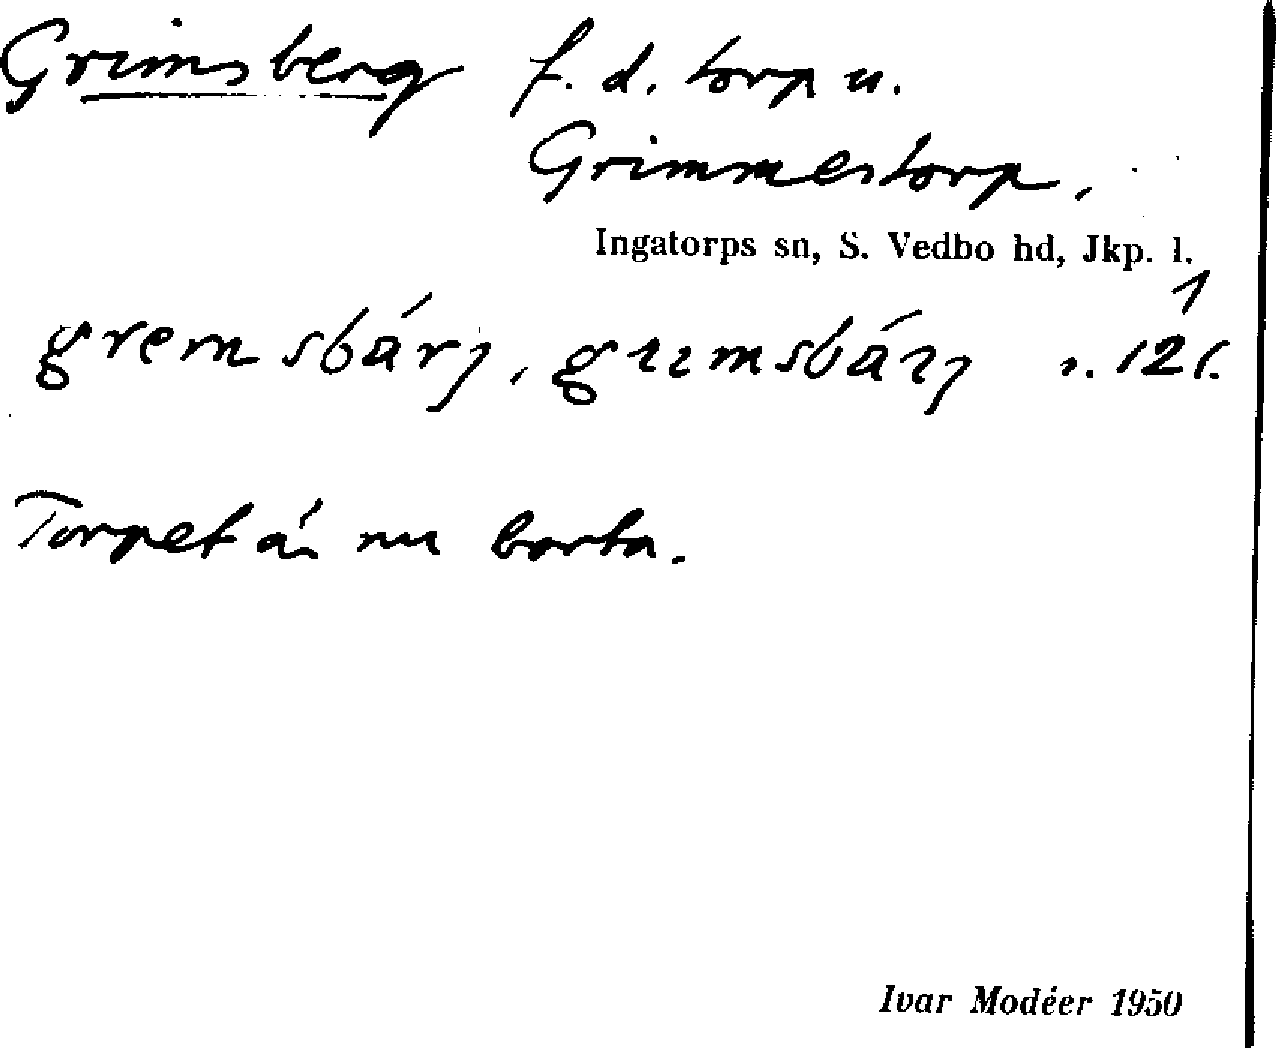 Grimsberg f. d. torp u.
Grimmestorp.
Ingatorps sn, S. Vedbo hd, Jkp. l.
gremsbárj, grımsbárj
Torpet är nu borta.
Ivar Modéer 1950